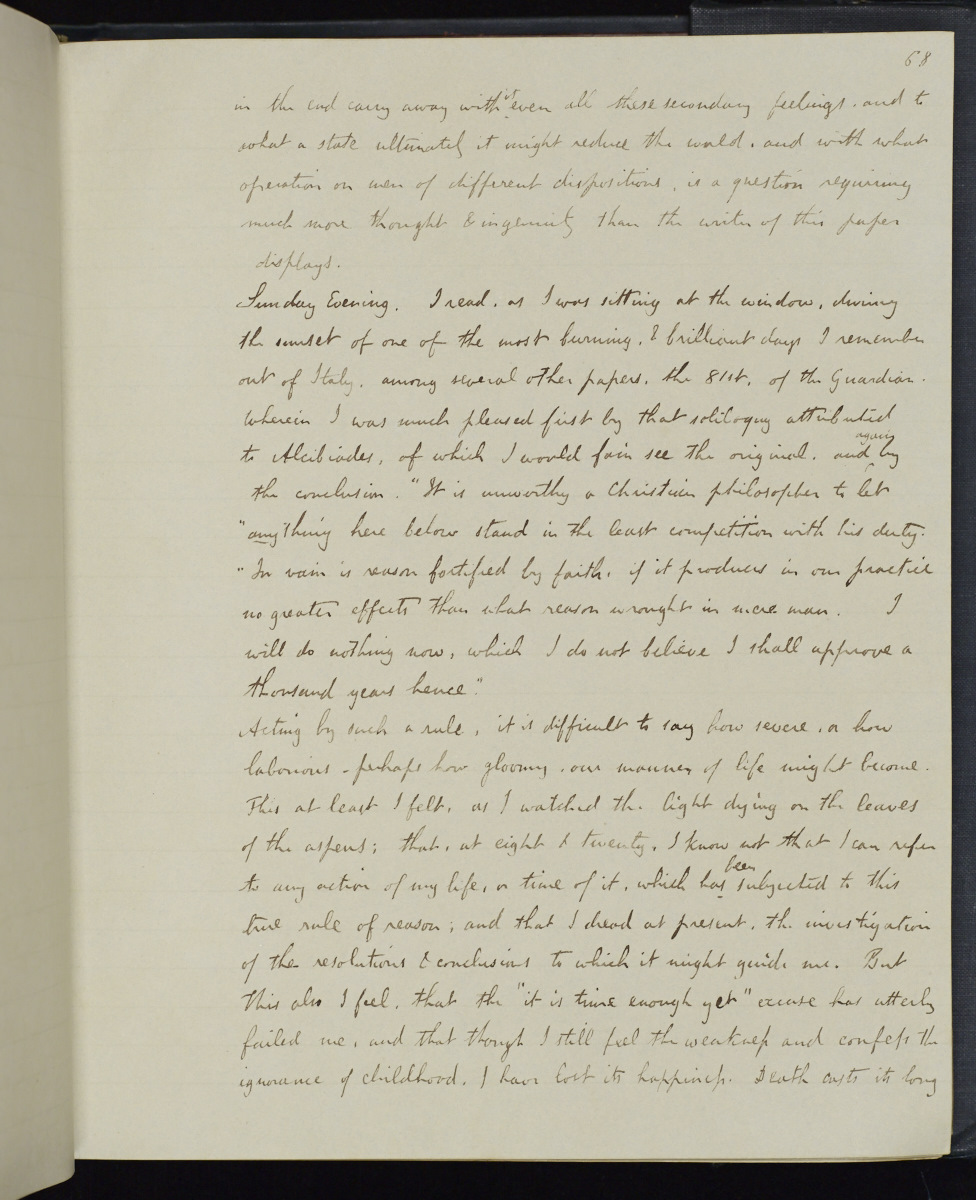 68
in the end carry away with it even all these secondary feelings. and to
what a state ultimately it might reduce the world. and with what
operation on men of different dispositions, is a question requiring
much more thought & ingenuity than the writer of this paper
displays.
Sunday Evening. I read. as I was sitting at the window, during
the sunset of one of the most burning, & brilliant days I remember
out of Italy. among several other papers. the 81st, of the Guardian.
Wherein I was much pleased first by that soliloquy attributed
to Alcibiades, of which I would fain see the original. and again by
the conclusion. "It is unworthy a Christian philosopher to let
"anything here below stand in the least competition with his duty.
"In vain is reason fortified by faith, if it produces in our practice
no greater effects than what reason wrought in mere man. I
will do nothing now, which I do not believe I shall approve a
thousand years hence".
Acting by such a rule, it is difficult to say how severe, or how
laborious - perhaps how gloomy. our manner of life might become.
This at least I felt, as I watched the light dying on the leaves
of the aspens; that, at eight & twenty, I know not that I can refer
to any action of my life, or time of it, which has been subjected to this
true rule of reason; and that I dread at present, the investigation
of the resolutions & conclusions to which it might guide me. But
this also I feel, that the "it is time enough yet" excuse has utterly
failed me, and that though I still feel the weakness and confess the
ignorance of childhood, I have lost its happiness. Death casts its long